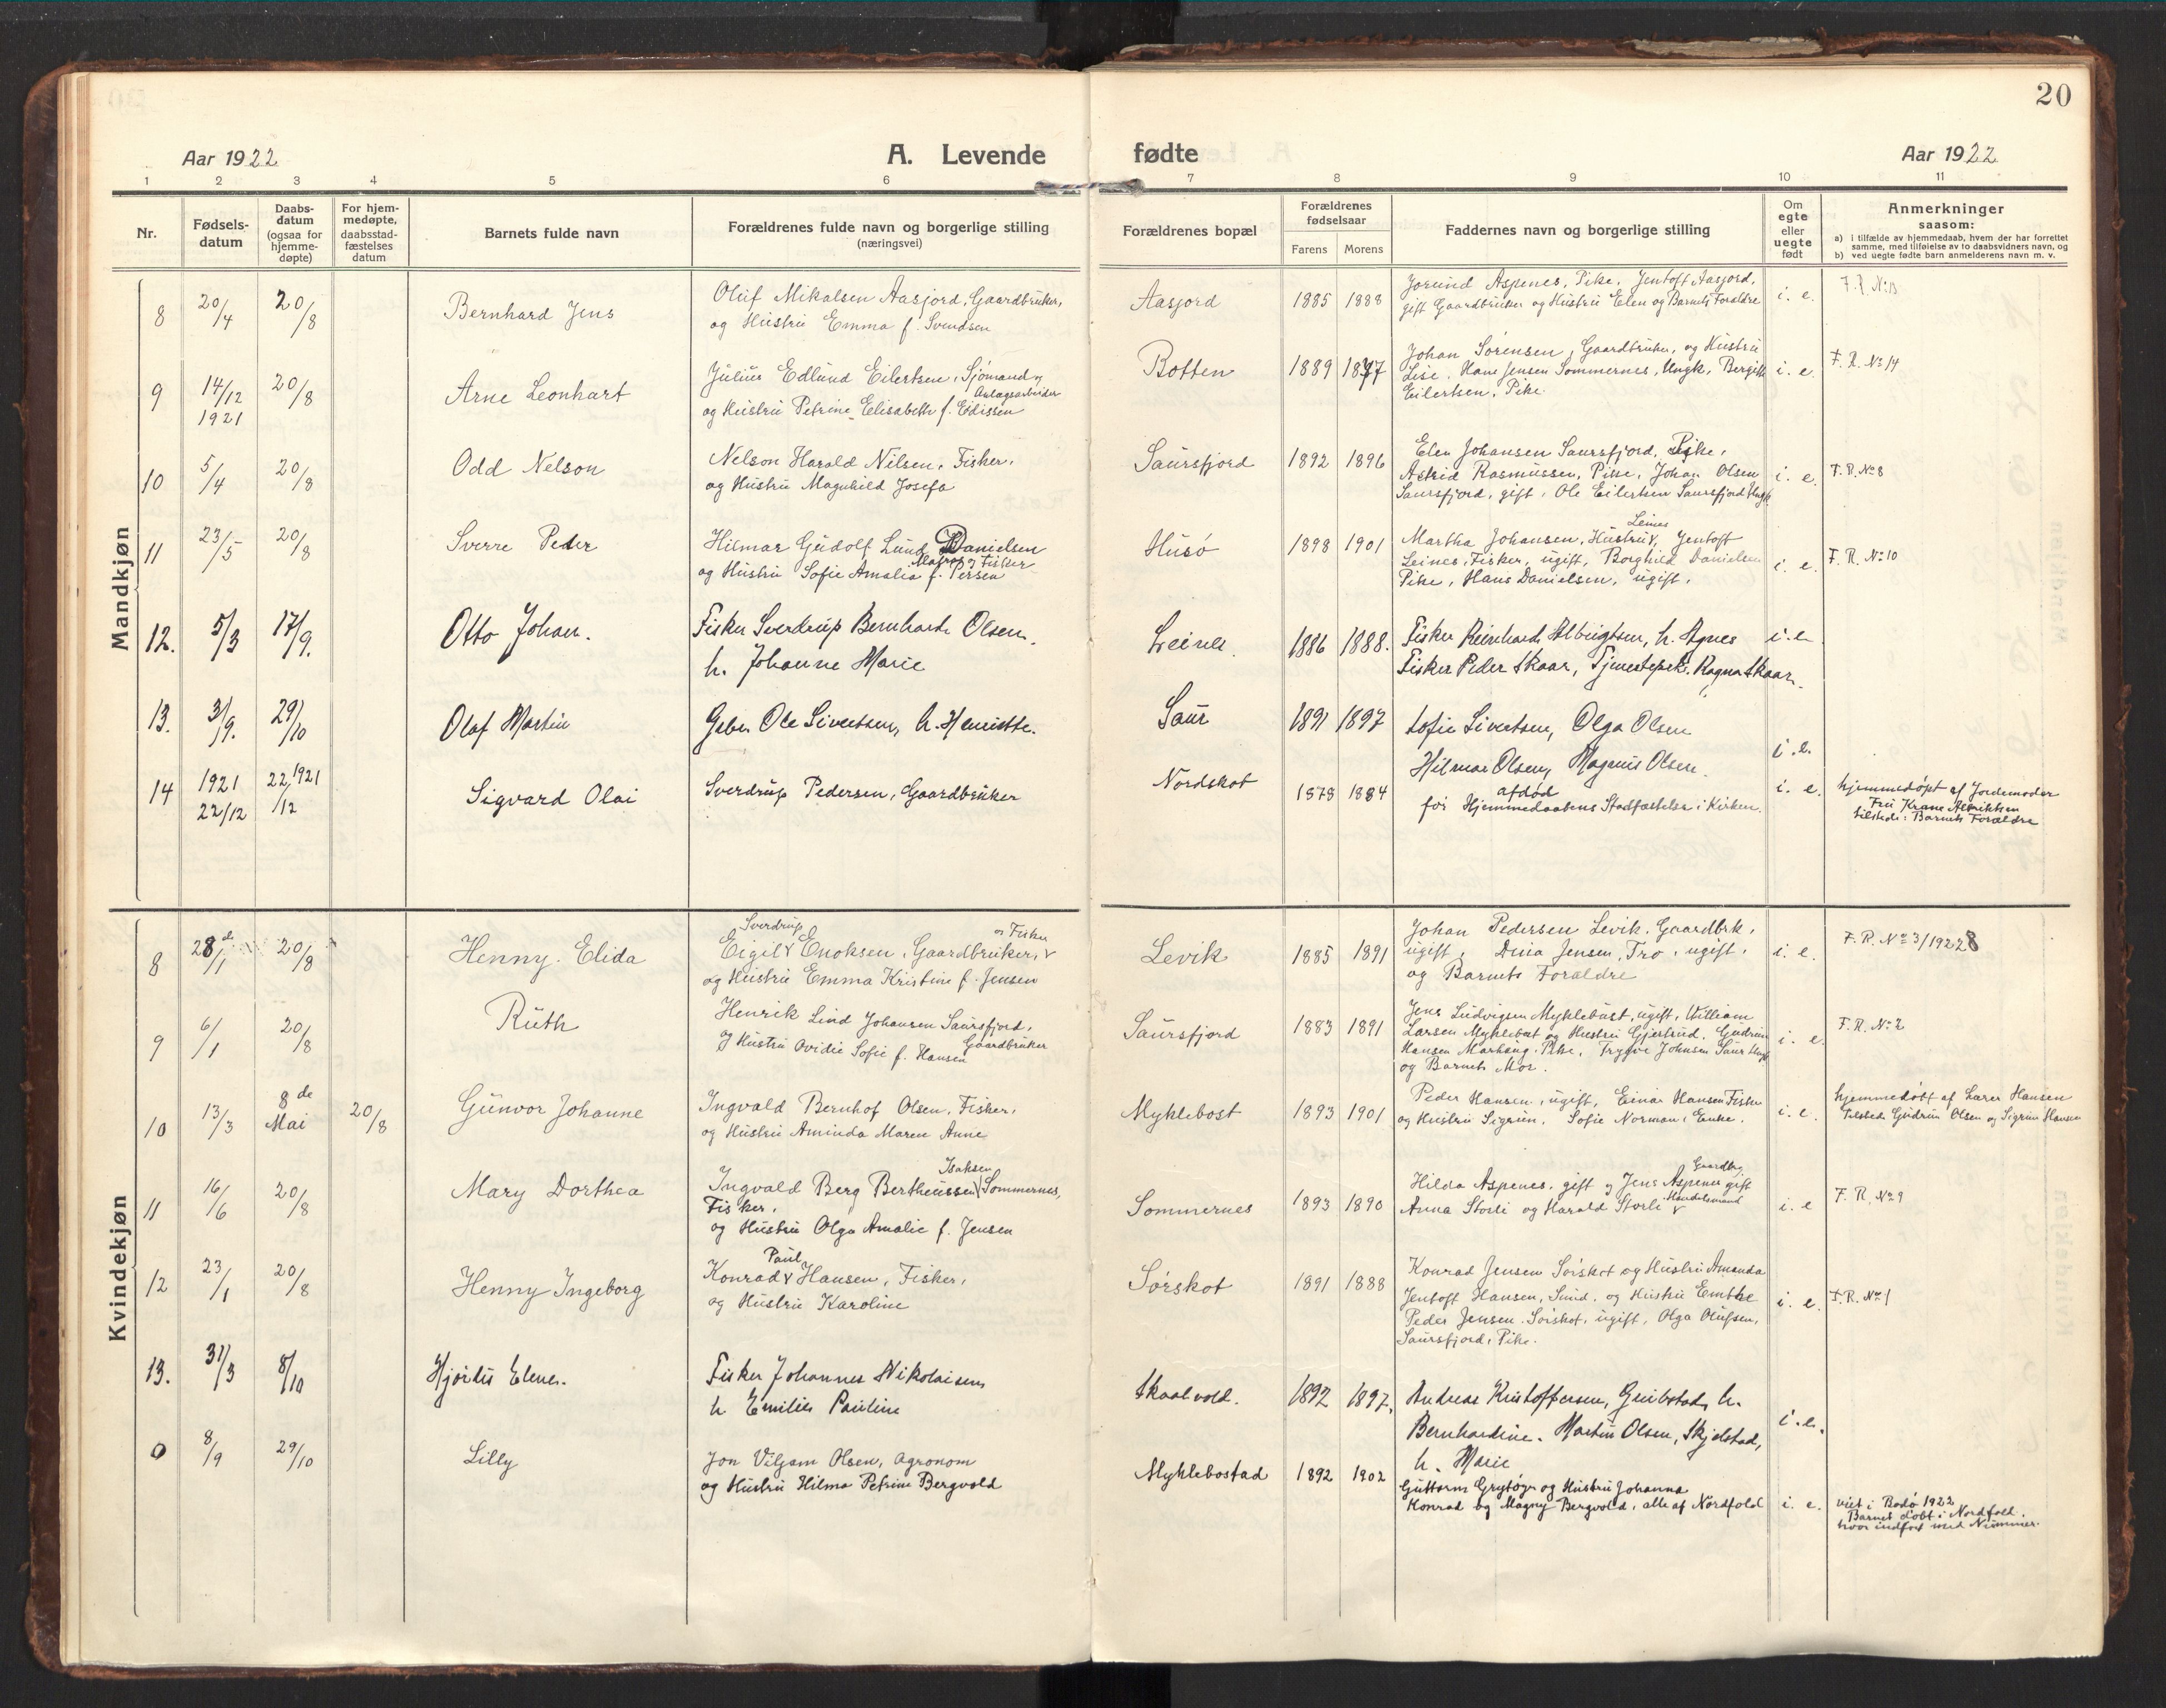 20
Aar 1922
A. Levende
fødte
Aar 1922
1 2 3 4 5 6 7 8 9 10 11
Nr.
Fødsels-
datum
Daabs-
datum
(ogsaa for
hjemme-
døpte)
For hjem-
medøpte,
daabsstad-
fæstelses
datum
Barnets fulde navn
Forældrenes fulde navn og borgerlige stilling
(næringsvei)
Forældrenes bopæl
Forældrenes
fødselsaar
Farens Morens
Faddernes navn og borgerlige stilling
Om
egte
eller
uegte
født
Anmerkninger
saasom:
a) i tilfælde av hjemmedaab, hvem der har forrettet
samme, med tilføielse av to daabsvidners navn, og
b) ved uegte fødte barn anmelderens navn m. v.
Mandkjøn
8 20/4 20/8 Bernhard Jens
Oluf Mikalsen Aasjord, Gaardbruker,
og Hustru Emma f. Svendsen
Aasjord 1885 1888
Jorund Aspenes, Pike, Jentoft Aasjord,
gift Gaardbruker og Hustru Elen og Barnets Forældre
i. e. F. R. No 13
9 14/12 1921 20/8 Arne Leonhart
Julius Edlund Eilertsen, Sjømand og
Anlægsarbeider
og Hustru Petrine Elisabeth f. Edissen
Botten 1889 1887
Johan Sørensen, Gaardbruker, og Hustru
Lise. Hans Jensen Sommernes, Ungk, Bergit
Eilertsen, Pike.
i. e. F. R. No 14
10 5/4 20/8 Odd Nelson
Nelson Harald Nilsen, Fisker,
og Hustru Magnhild Josefa
Saursfjord 1892 1896
Elen Johansen Saursfjord, Pike,
Astrid Rasmussen, Pike, Johan Olsen
Saursfjord, gift, Ole Eilertsen Saursfjord Ungk.
i. e. F. R. No 8
11 23/5 20/8 Sverre Peder
Hilmar Gudolf Lund Danielsen
Matros og Fisker
og Hustru Sofie Amalia f. Persen
Husø 1898 1901
Leines
Martha Johansen, Hustru, Jentoft
Leines, Fisker, ugift, Borghild Danielsen
Pike, Hans Danielsen, ugift,
i. e. F. R. No 10
12. 5/3 17/9. Otto Johan.
Fisker Sverdrup Bernhard Olsen,
h. Johanne Marie
Leines. 1886 1888.
Fisker Reinhard Albrigtsen, h. Agnes
Fisker Peder Skaar, Tjenestepik. Ragna Skaar.
i. e.
13. 3/9. 29/10 Olaf Martin
Gbr. Ole Sivertsen, h. Henriette.
Saur 1891 1897
Sofie Sivertsen, Olga Olsen
Hilmar Olsen, Magnus Olsen.
i. e.
14 1921 22/12 22/12 1921 Sigvard Olai
Sverdrup Pedersen, Gaardbruker
Nordskot 1878 1884
afdød
før Hjemmedaabens Stadfæstelse i Kirken.
i. e. hjemmedøpt af Jordemoder
Fru Krane Alriktsen
tilstede: Barnets Forældre
Kvindekjøn
8 28/1 20/8 Henny Elida
Sverdrup og Fisker
Eigil Enoksen, Gaardbruker,
og Hustru Emma Kristine f. Jensen
Levik 1885 1891
Johan Pedersen Levik, Gaardbrk,
ugift, Dina Jensen, Tro, ugift,
og Barnets Forældre
i. e. F. R. No 3/1922
9 6/1 20/8 Ruth
Henrik Lind Johansen Saursfjord,
Gaardbruker
og Hustru Ovidie Sofie f. Hansen
Saursfjord 1883 1891
Jens Ludvigsen Myklebust, ugift, William
Larsen Myklebust og Hustru Gjertrud. Gudrun
Hansen Marhaug, Pike, Trygve Johnsen Saur Ungk
og Barnets Mor.
i. e. F. R. No 2
10 13/3 8de Mai 20/8 Gunvor Johanne
Ingvald Bernhof Olsen, Fisker,
og Hustru Aminda Maren Anne
Myklebost 1893 1901
Peder Hansen, ugift, Einar Hansen Fisker
og Hustru Sigrun, Sofie Norman, Enke.
i. e. hjemmedøbt af Lærer Hansen
Tilstede Gudrun Olsen og Sigrun Hansen
11 16/6 20/8 Mary Dorthea
Isaksen
Ingvald Berg Bertheussen Sommernes,
Fisker,
og Hustru Olga Amalie f. Jensen
Sommernes 1893 1890
Gaardbr.
Hilda Aspenes, gift og Jens Aspenes gift
Anna Storli og Harald Storli Handelsmand
i. e F. R. No 9
12 23/1 20/8 Henny Ingeborg
Paul
Konrad Hansen, Fisker,
og Hustru Karoline
Sørskot 1891 1888
Konrad Jensen Sørskot og Hustru Amanda
Jentoft Hansen, Sund, og Hustru Emthe
Peder Jensen Sørskot, ugift, Olga Olufsen,
Saursfjord, Pike.
i. e. F. R. No 1
13. 31/3 8/10 Hjørdis Elene.
Fisker Johannes Nikolaisen,
h Emilie Pauline
Skaalvold. 1892 1897.
Andreas Kristoffersen, Gribstad, h.
Bernhardine. Martin Olsen, Skjelstad,
h. Marie
i. e.
0 8/9 29/10 Lilly
Jon Viljam Olsen, Agronom
og Hustru Hilma Petrine Bergvold
Myklebostad 1892 1902
Guttorm Grytøyr og Hustru Johanna
Konrad og Magny Bergvold, alle af Nordfold
i. e. viet i Bodø 1922
Barnet døbt i Nordfold.
hvor indført med Nummer.